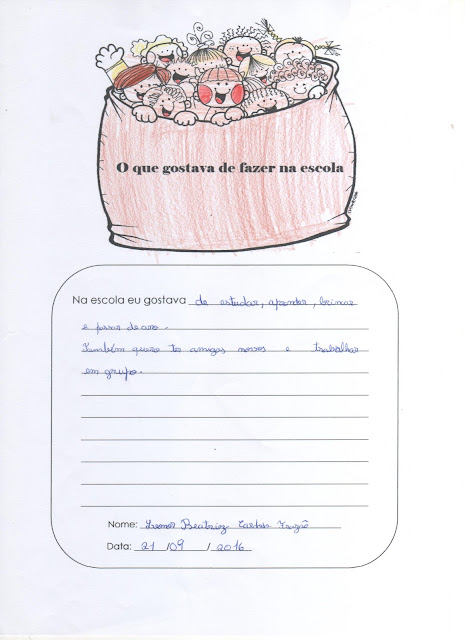 O que gostava de fazer na escola
Na escola eu gostava de estudar, aprender, brincar
e passar de ano.
Também quero ter amigos novos e trabalhar
em grupo.
Nome: Leonor Beatriz
Data: 21/09/2016